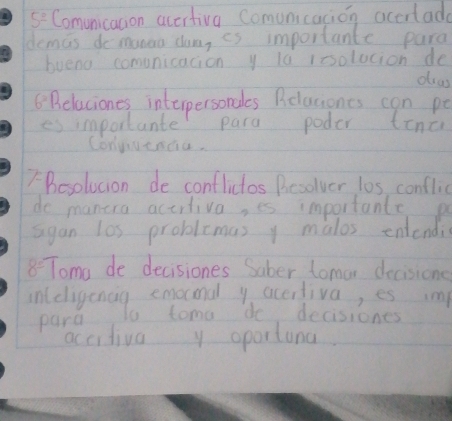 5º Comunicacion acertiva Comunicación acertad
demas de manera clara, es importante para
buena comunicacion y la resolucion de
dias
6º Relaciones interpersonales Relaciones con pe
es importante para poder tener
Convivencia.
7º Resolucion de conflictos Resolver los conflic
de manera acertiva, es importante pa
agan los problemas y malos entendi
8º Toma de decisiones Saber tomar decisione
inteligencia emocional y acertiva, es imp
para la toma de decisiones
acertiva y oportuna.